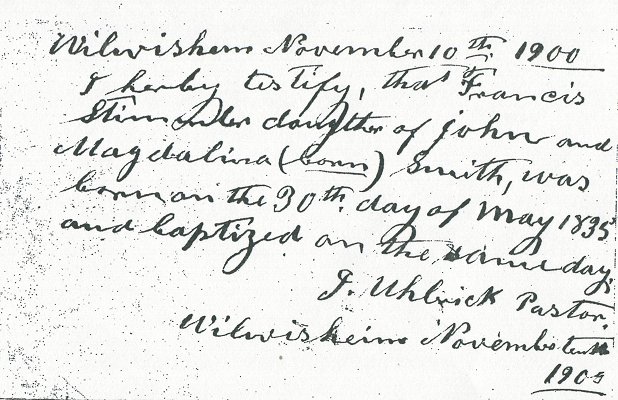 Wilwishem November 10th 1900
I herby testify, that Francis
Stimmler daughter of John and
Magdalina (born) Smith, was
born on the 30th day of May 1835
and baptized on the same day.
J. Uhlrick Pastor.
Wilwisheim November tenth
1900